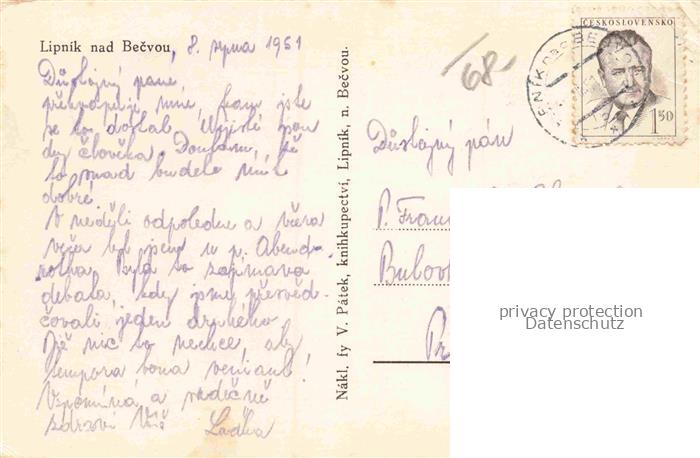 Lipník nad Bečvou, 8. srpna 1951
Důstojný pane,
překvapuje mne, kam jste
se to dostal.
dy člověka. Doufám, že
to snad budete mít
dobré.
V neděli odpoledne a včera
večer byl jsem u p. Abend-
rotha. Byla to zajímavá
debata, kdy jsme přesvěd-
čovali jeden druhého.
Už nic to nechce, aby
tempora bona veniant!
Vzpomíná a srdečně
zdraví Váš Ladka
Nákl. fy V. Pátek, knihkupectví, Lipník, n. Bečvou.
68-
ČESKOSLOVENSKO
1 50
Důstojný pán
P. Fran
Bulov
Pr
privacy protection
Datenschutz